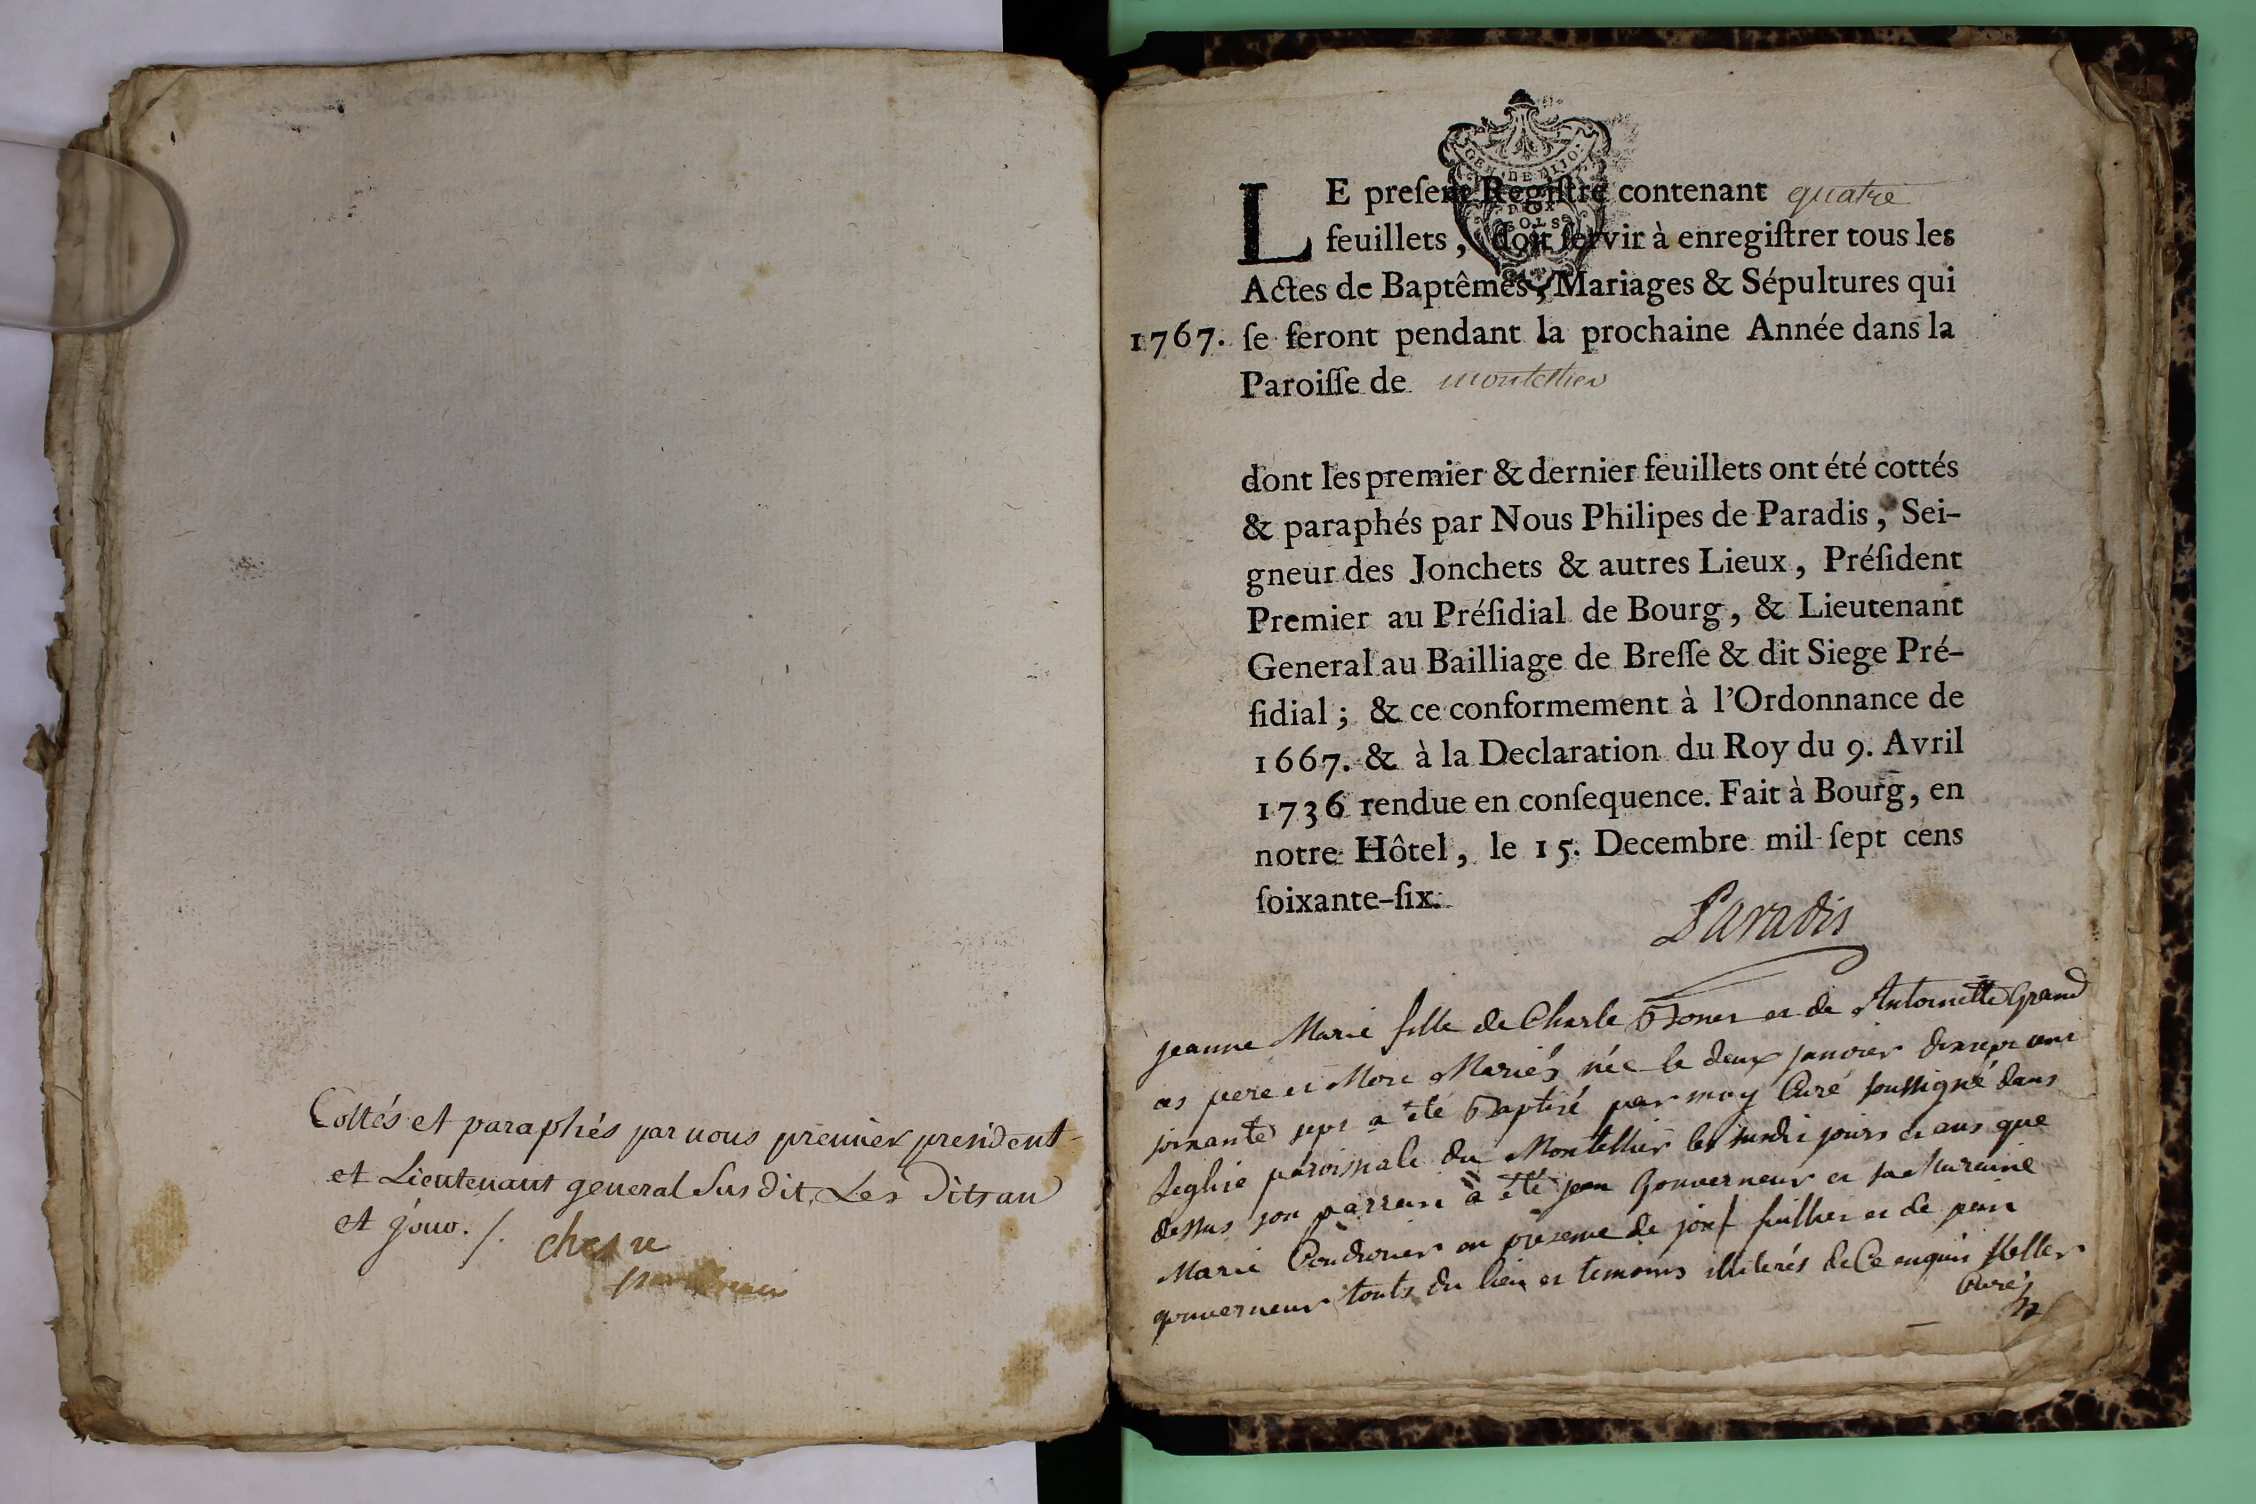 Cottés et paraphés par nous premier president
et Lieutenant general Susdit, Les Dits an
et jour. /.
GEN. DE DIJO
DEUX
SOLS
LE preſent Regiſtre contenant quatre
feuillets, doit ſervir à enregiſtrer tous les
Actes de Baptêmes, Mariages & Sépultures qui
1767. ſe feront pendant la prochaine Année dans la
Paroiſſe de montellier
dont les premier & dernier feuillets ont été cottés
& paraphés par Nous Philipes de Paradis, Sei-
gneur des Jonchets & autres Lieux, Préſident
Premier au Préſidial de Bourg, & Lieutenant
General au Bailliage de Breſſe & dit Siege Pré-
ſidial ; & ce conformement à l'Ordonnance de
1667. & à la Declaration du Roy du 9. Avril
1736 rendue en conſequence. Fait à Bourg, en
notre Hôtel, le 15. Decembre mil ſept cens
ſoixante-ſix.
Paradis
jeanne Marie fille de Charle et de Antoinette Grand
pere et Mere Mariés née le deux janvier dixsept cent
soixante sept a été Baptisé par moy Curé soussigné dans
leglise paroissiale du Montellier les susdit jours et ans que
dessus son parrein a été jean Gouverneur et sa Mareine
Marie en presence de et de
gouverneur touts du lieu et temoins illiterés de Ce enquis
Curé